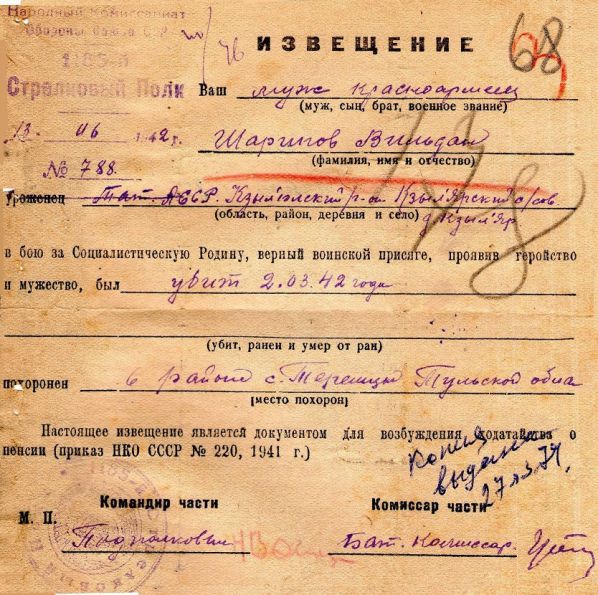 Народный Комиссариат
Обороны Союза ССР
1185-й
Стрелковый Полк
13 06 1942 г.
№ 788
68
ИЗВЕЩЕНИЕ
Ваш муж красноармеец
(муж, сын, брат, военное звание)
Шарипов Вильдан
(фамилия, имя и отчество)
уроженец Тат. АССР. Кзыл'юлский р-он Кзыл'ярский с/сов
(область, район, деревня и село) д. Кзыл'яр
в бою за Социалистическую Родину, верный воинской присяге, проявив геройство
и мужество, был убит 2.03.42 года
(убит, ранен и умер от ран)
похоронен в районе с. Тереницы Тульской обла
[место похорон)
Настоящее извещение является документом для возбуждения ходатайства о
пенсии (приказ НКО СССР № 220, 1941 г.)
Копия
выдана
27
Командир части
Комиссар части
М. П.
Подполковник
Бат. Комиссар.